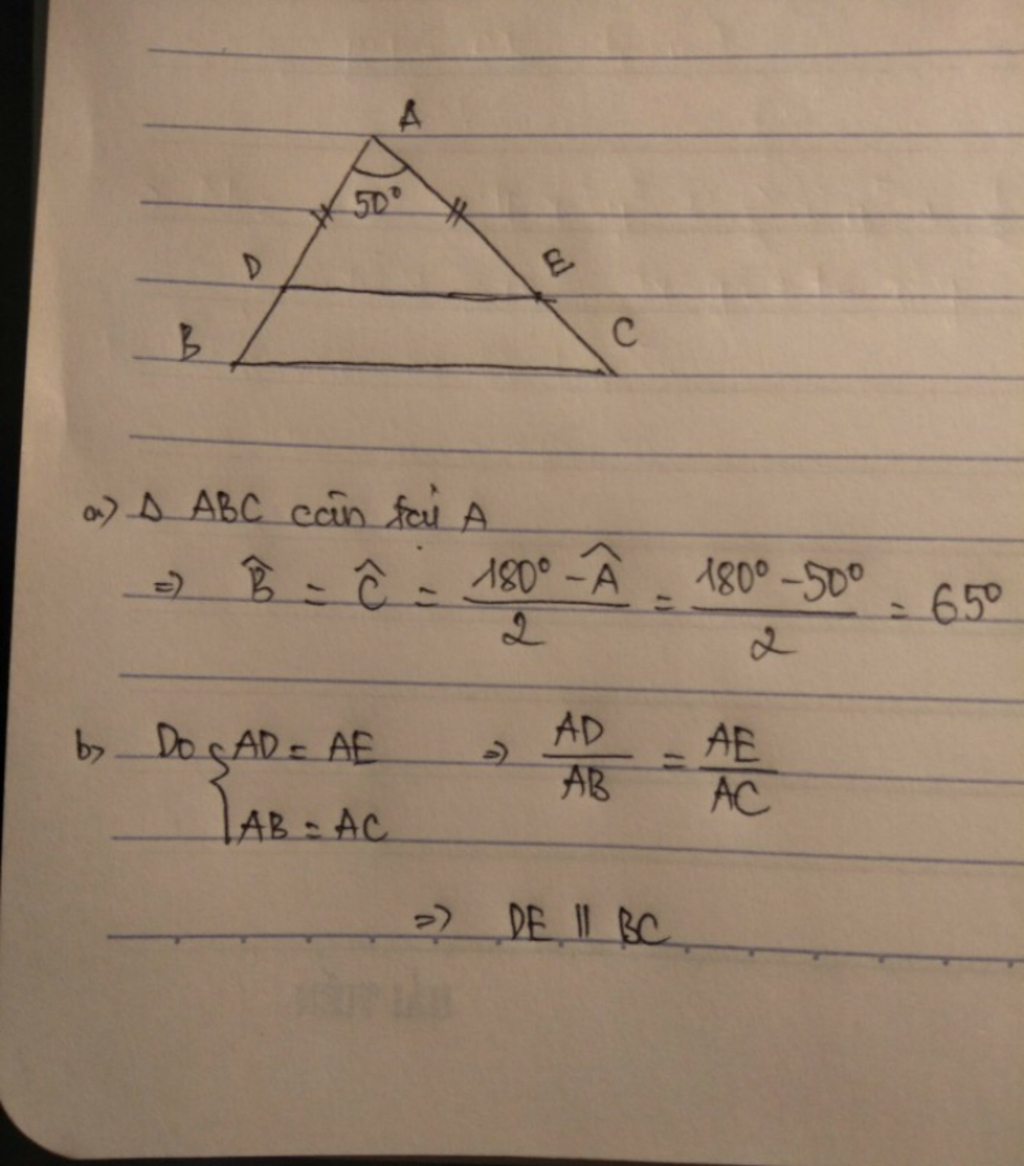 A
50°
D
E
B
C
a) Δ ABC cân tại A
=> B̂ = Ĉ = (180° - Â)/2 = (180° - 50°)/2 = 65°
b) Do { AD = AE => AD/AB = AE/AC
AB = AC
=> DE || BC